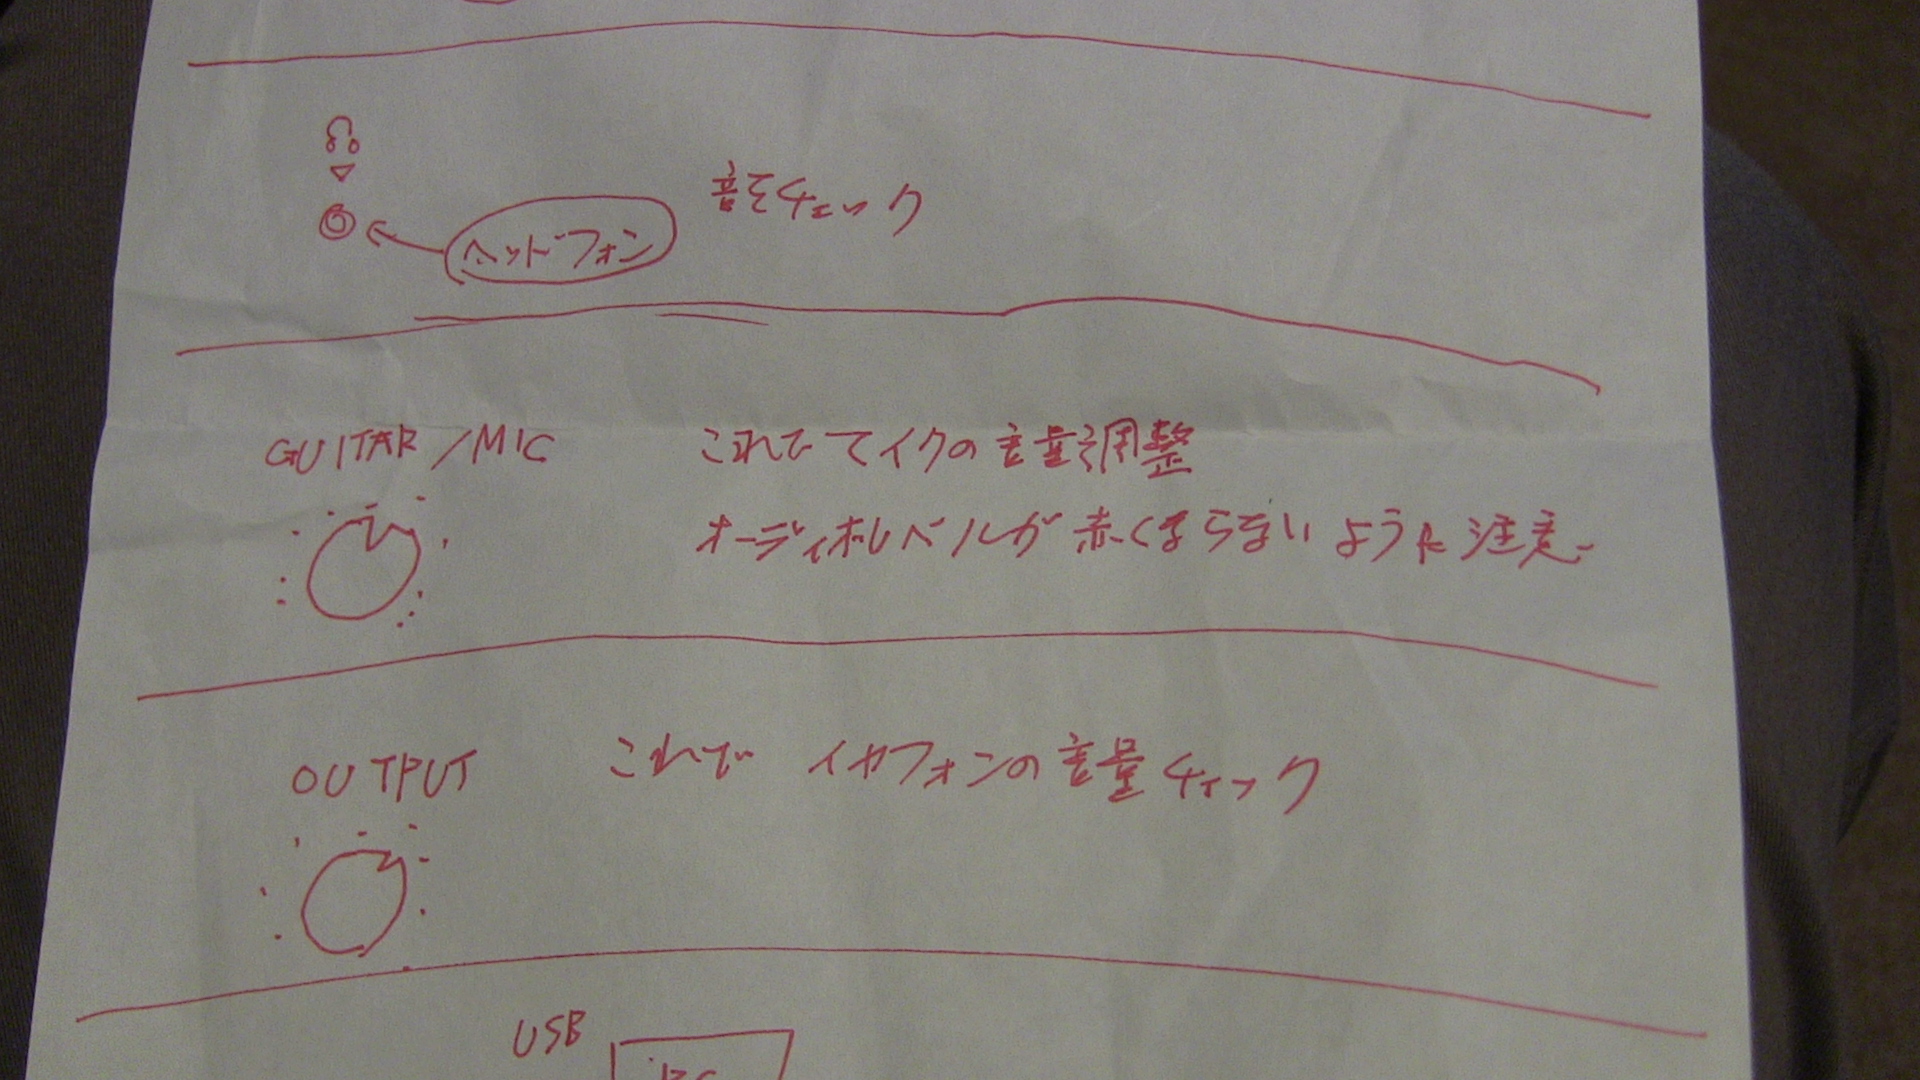 音をチェック
ヘッドフォン
GUITAR/MIC
これでマイクの音量調整
オーディオレベルが赤くならないように注意
OUTPUT
これで イヤフォンの音量チェック
USB